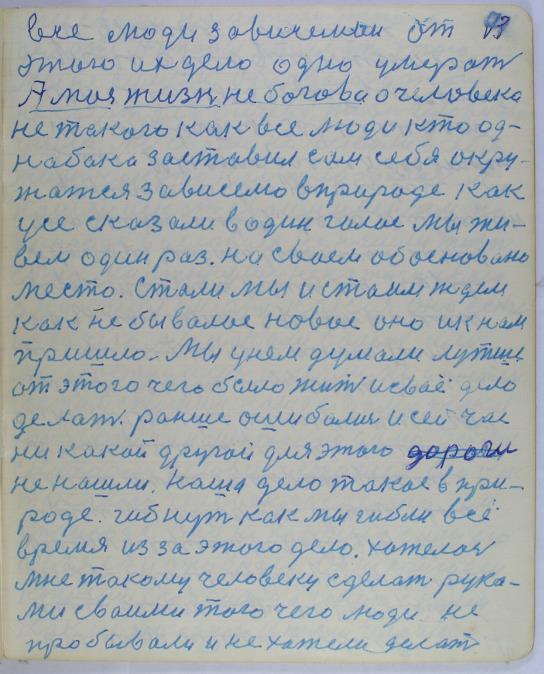 все люди зависемаи от 13
этого их дело одно умерат
А моя жизн не богова а человека
не такого как все люди кто од-
набака заставил сам себя окру-
жатся зависемо в природе как
усе сказали в один голас мы жи-
вем один раз. на своем обосновано
место. Стали мы и стоим ждем
как не бывалое новое оно и к нам
пришло. Мы у нем думали лутше
от этого чего было жит и сваё дело
делат. раньше ошибалис и сей час
ни какой другой для этого дороги
не нашли. Наша дело такое в при-
роде. гибнут как мы гибли всё
время из за этого дело. хателос
мне такому человеку сделат рука-
ми своими того чего люди не
пробывали и не хатели делат